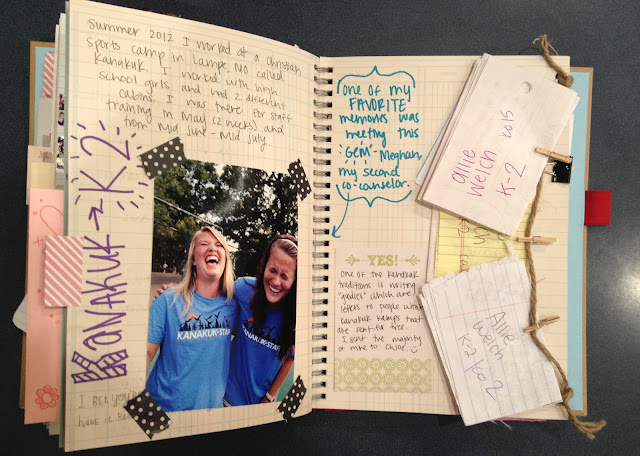 Summer 2012 I worked at a Christian
sports camp in Lampe, MO called
Kanakuk. I worked with high
school girls and had 2 different
cabins. I was there for staff
training in May (2 weeks) and
from mid June - mid July.
Kanakuk → K2
KANAKUK STAFF
KANAKUK STAFF
I bet you
have a
one of my
FAVORITE
memories was
meeting this
"GEM" - Meghan,
my second
co-counselor.
YES!
one of the Kanakuk
traditions is writing
which are
letters to people with
Kanakuk Kamps that
are sent for free.
I sent the majority
of mine to Chloe.
allie
welch
K-2
Allie
Welch
K-2